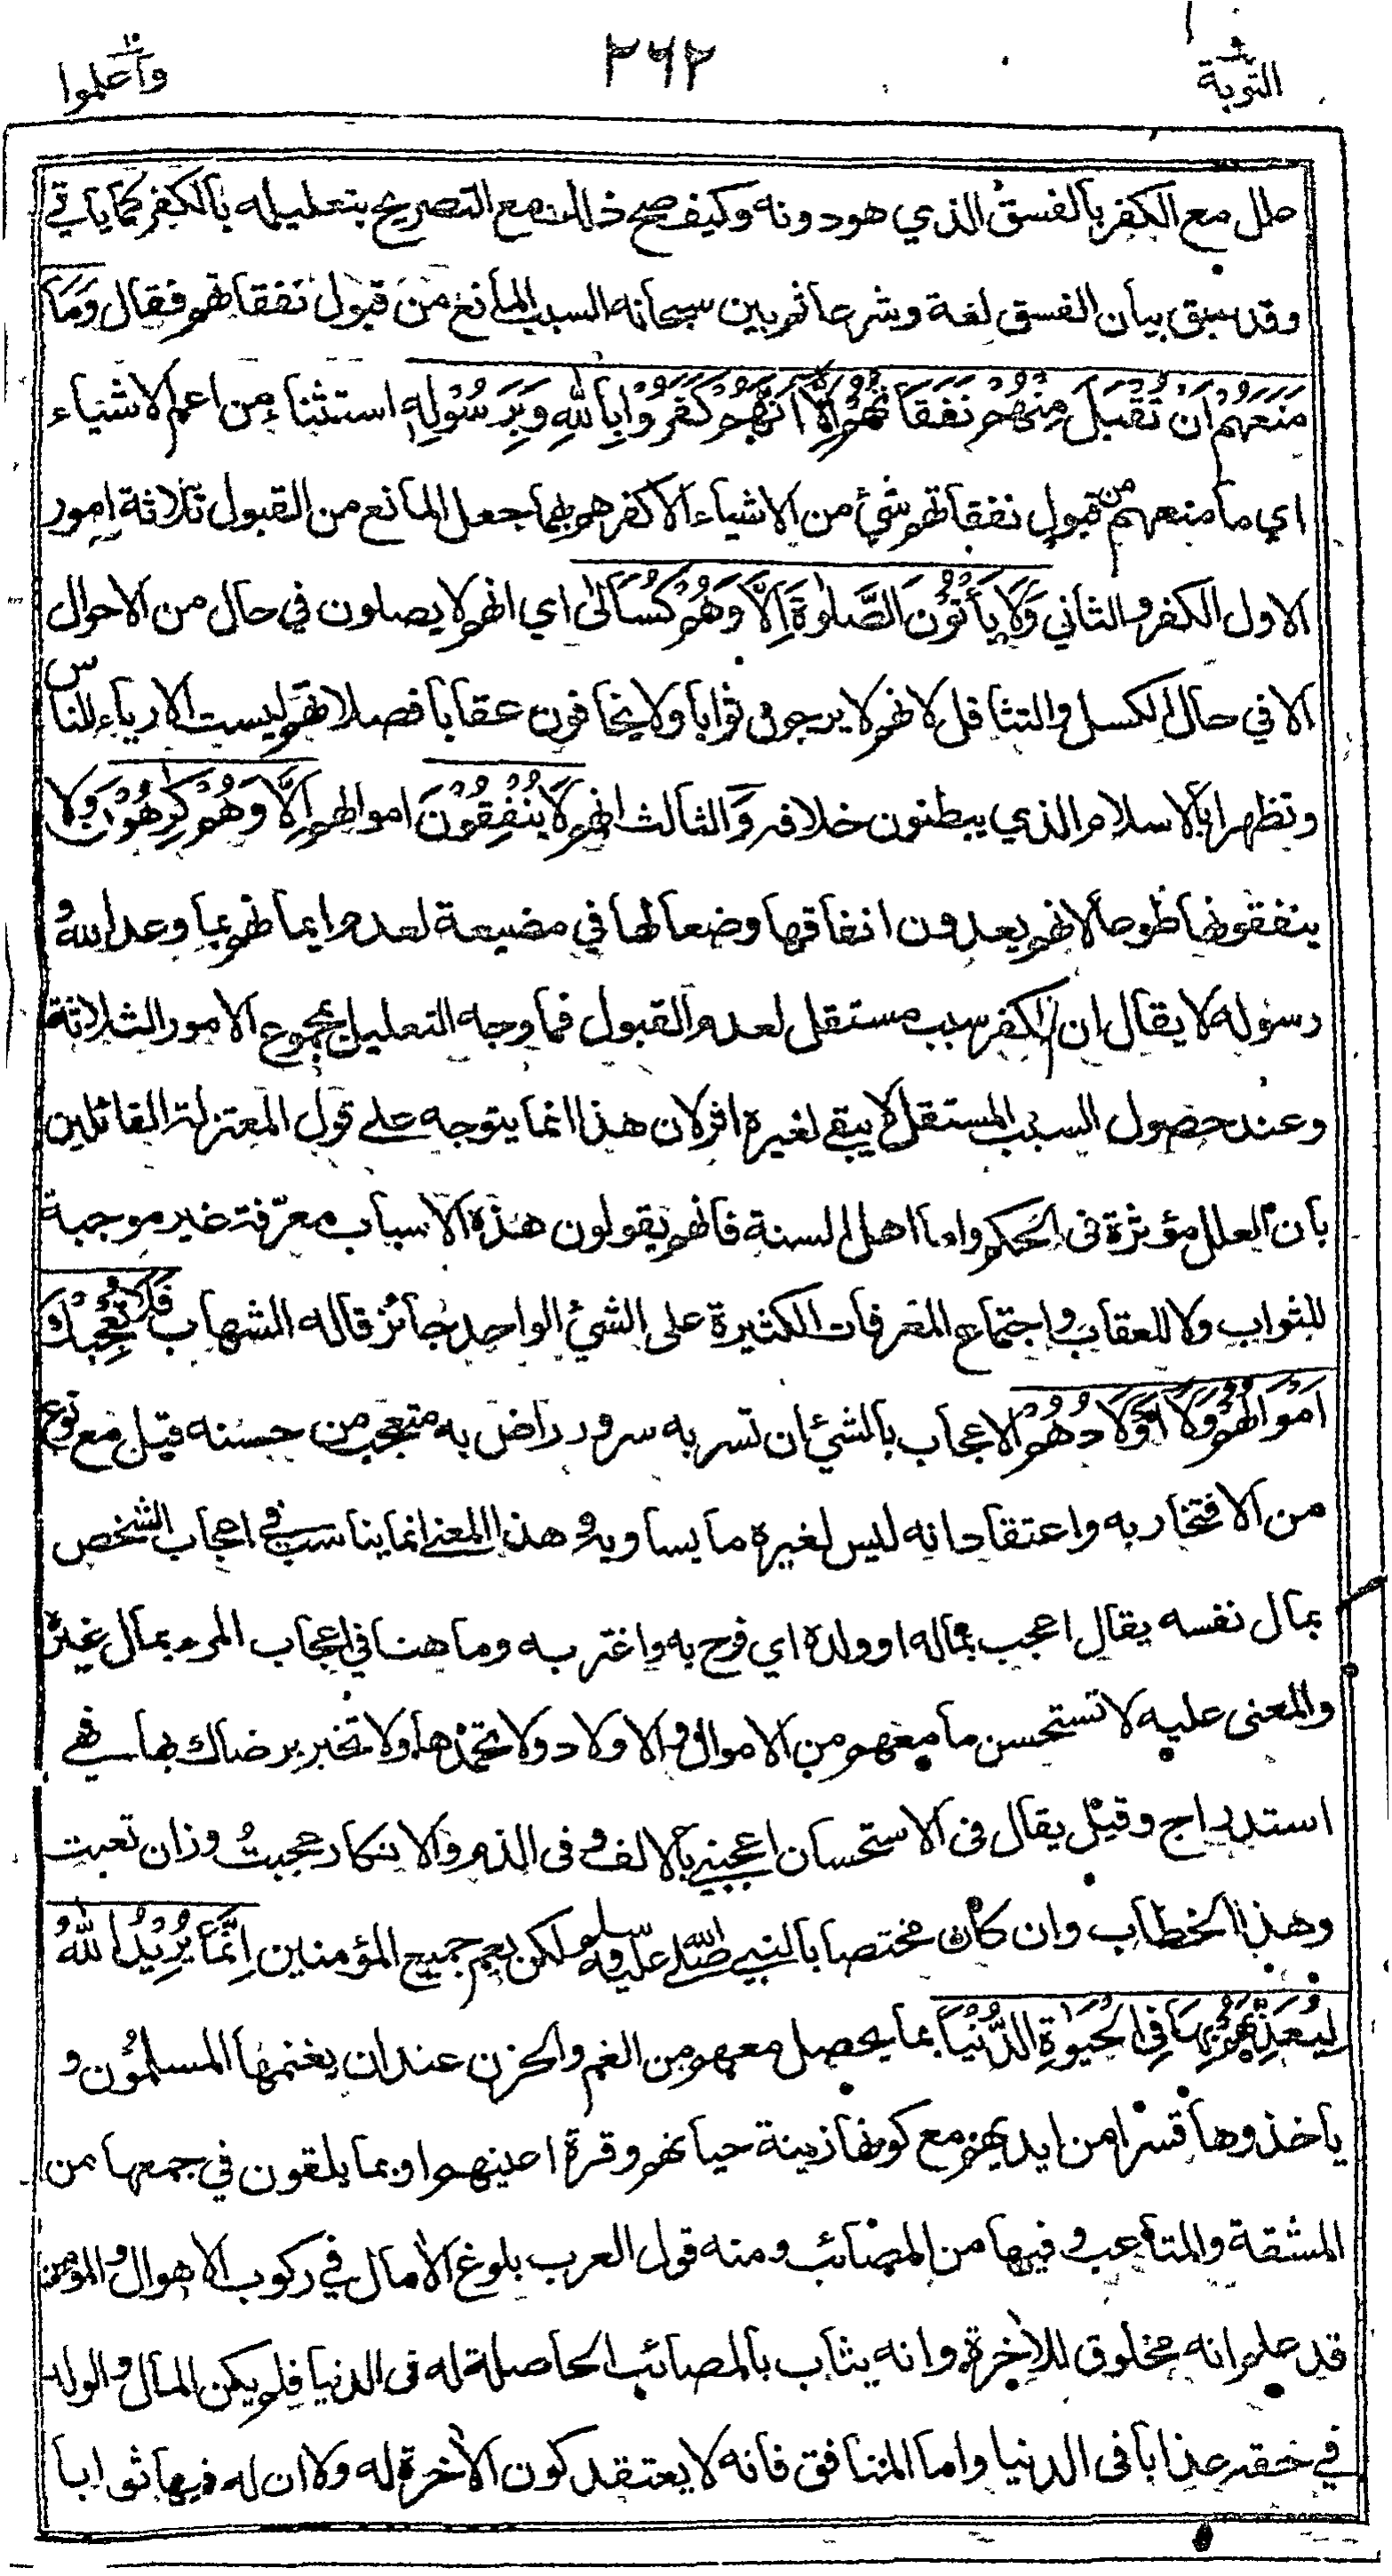 التوبة ٩
٢٦٢
واعلموا ١٠
علل مع الكفر بالفسق الذي هو دونه وكيف صح ذلك مع التصريح بتعليله بالكفر كما ياتي
وقد سبق بيان الفسق لغة وشرعا ثم بين سبحانه السبب المانع من قبول نفقاتهم فقال وَمَا
مَنَعَهُمْ اَنْ تُقْبَلَ مِنْهُمْ نَفَقَاتُهُمْ اِلَّا اَنَّهُمْ كَفَرُوْا بِاللهِ وَبِرَسُوْلِهٖ استثناء من اعم الاشياء
اي ما منعهم من قبول نفقاتهم شئ من الاشياء الا كفرهم بهما جعل المانع من القبول ثلاثة امور
الاول الكفر والثاني وَلَا يَأْتُوْنَ الصَّلٰوةَ اِلَّا وَهُمْ كُسَالٰى اي انهم لا يصلون في حال من الاحوال
الا في حال الكسل والتثاقل لانهم لا يرجون ثوابا ولا يخافون عقابا فصلاتهم ليست الا رياء للناس
وتظهرا بالاسلام الذي يبطنون خلافه وَ الثالث انهم لَا يُنْفِقُوْنَ اموالهم اِلَّا وَهُمْ كٰرِهُوْنَ ولا
ينفقونها طوعا لانهم يعدون انفاقها وضعا لها في مضيعة لعدم ايمانهم بما وعد الله و
رسوله لا يقال ان الكفر سبب مستقل لعدم القبول فما وجه التعليل بمجموع الامور الثلاثة
وعند حصول السبب المستقل لا يبقى لغيره اثر لان هذا انما يتوجه على قول المعتزلة القائلين
بان العلل مؤثرة في الحكم واما اهل السنة فانهم يقولون هذه الاسباب معرّفة غير موجبة
للثواب ولا للعقاب واجتماع المعرفات الكثيرة على الشئ الواحد جائز قاله الشهاب فَلَا تُعْجِبْكَ
اَمْوَالُهُمْ وَلَا اَوْلَادُهُمْ الاعجاب بالشئ ان تسر به سرور راض به متعجب من حسنه قيل مع نوع
من الافتخار به واعتقاد انه ليس لغيره ما يساويه و هذا المعنى انما يناسب في اعجاب الشخص
بمال نفسه يقال اعجب بماله او ولده اي فرح به واغتر به وما هنا في اعجاب المرء بمال غيره
والمعنى عليه لا تستحسن ما معهم من الاموال والاولاد ولا تحمدها ولا تخبر برضاك بها فهي
استدراج وقيل يقال في الاستحسان اعجبني بالالف و في الذم والانكار عجبتُ وزان تعبت
وهذا الخطاب وان كان مختصا بالنبي صلى الله عليه وسلم لكن يعم جميع المؤمنين اِنَّمَا يُرِيْدُ اللهُ
لِيُعَذِّبَهُمْ بِهَا فِي الْحَيٰوةِ الدُّنْيَا بما يحصل معهم من الغم والحزن عند ان يغنمها المسلمون و
ياخذوها قسرا من ايديهم مع كونها زينة حياتهم وقرة اعينهم او بما يلقون في جمعها من
المشقة والمتاعب و فيها من المصائب ومنه قول العرب بلوغ الآمال في ركوب الاهوال والمؤمن
قد علم انه مخلوق للآخرة وانه يثاب بالمصائب الحاصلة له في الدنيا فلم يكن المال والولد
في حقه عذابا في الدنيا واما المنافق فانه لا يعتقد كون الآخرة له ولا ان له فيها ثوابا